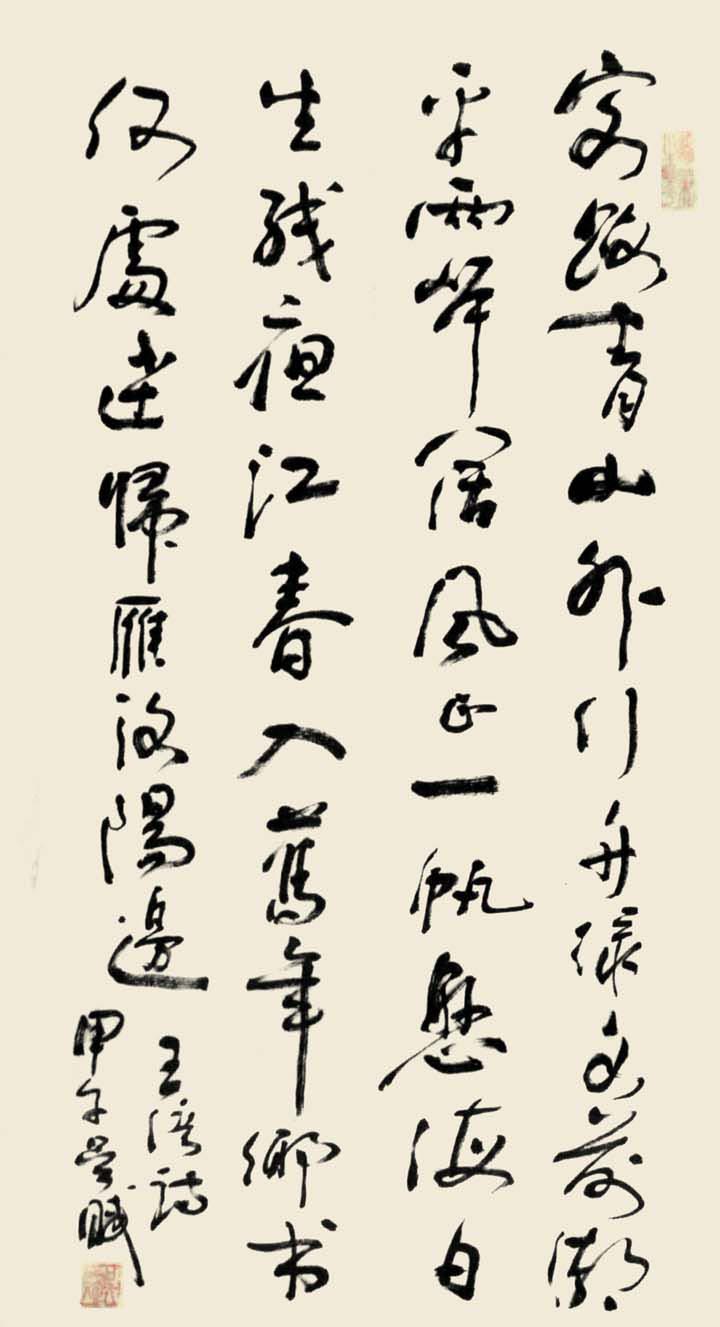 客路青山外行舟绿水前潮
平兩岸闊風正一帆懸海日
生残夜江春入舊年鄉书
何處達歸雁洛陽邊
王湾詩
甲子